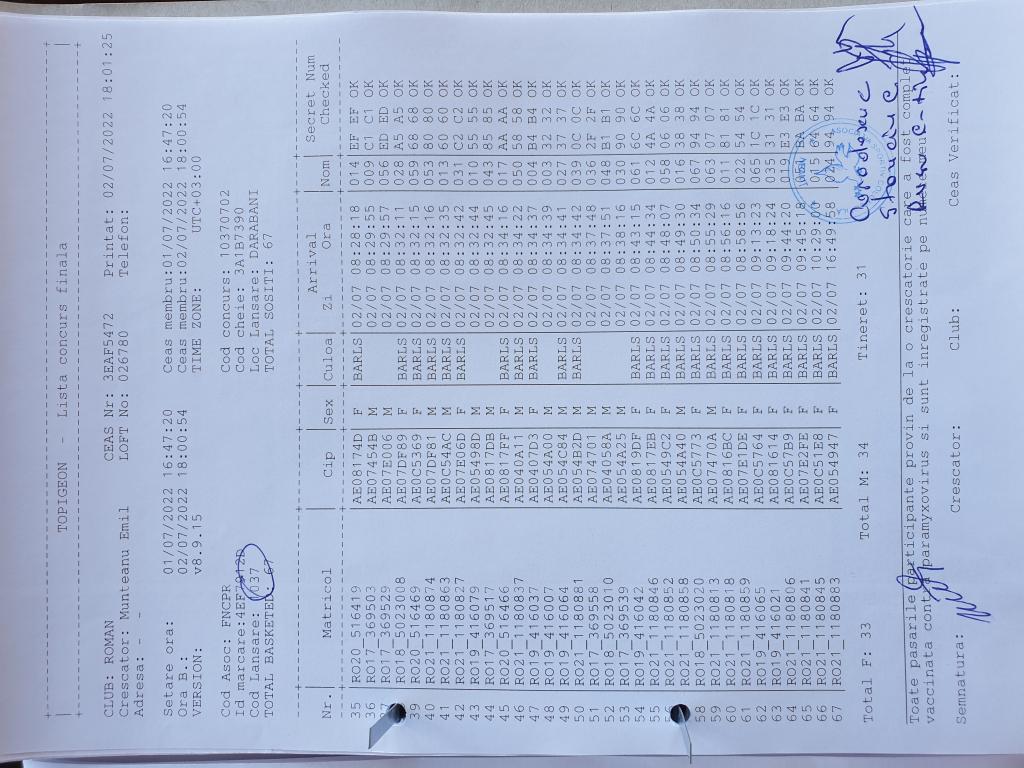 TOPIGEON - Lista concurs finala
CLUB: ROMAN CEAS Nr: 3EAF5472 Printat: 02/07/2022 18:01:25
Crescator: Munteanu Emil LOFT No: 026780 Telefon:
Adresa: - -
Setare ora: 01/07/2022 16:47:20 Ceas membru:01/07/2022 16:47:20
Ora B.: 02/07/2022 18:00:54 Ceas membru:02/07/2022 18:00:54
VERSION: v8.9.15 TIME ZONE: UTC+03:00
Cod Asoc: FNCPR Cod concurs: 10370702
Id marcare: Cod cheie: 3A1B7390
Cod Lansare: 037 Loc Lansare: DARABANI
TOTAL BASKETED: 67 TOTAL SOSITI: 67
Arrival Secret Num
Nr. Matricol Cip Sex Culoa Zi Ora Nom Checked
35 RO20_516419 AE08174D F BARLS 02/07 08:28:18 014 EF EF OK
36 RO17_369503 AE07454B M 02/07 08:29:55 009 C1 C1 OK
37 RO17_369529 AE07E006 M 02/07 08:29:57 056 ED ED OK
38 RO18_5023008 AE07DF89 F BARLS 02/07 08:32:11 028 A5 A5 OK
39 RO20_516469 AE0C5369 F BARLS 02/07 08:32:15 059 68 68 OK
40 RO21_1180874 AE07DF81 M BARLS 02/07 08:32:16 053 80 80 OK
41 RO21_1180863 AE0C54AC M BARLS 02/07 08:32:35 013 60 60 OK
42 RO21_1180827 AE07E06D F BARLS 02/07 08:32:42 031 C2 C2 OK
43 RO19_416079 AE05498D M 02/07 08:32:44 010 55 55 OK
44 RO17_369517 AE0817DB M 02/07 08:32:45 043 85 85 OK
45 RO20_516466 AE0817FF F BARLS 02/07 08:34:16 017 AA AA OK
46 RO21_1180837 AE040A11 M BARLS 02/07 08:34:22 050 58 58 OK
47 RO19_416037 AE0407D3 F BARLS 02/07 08:34:37 004 B4 B4 OK
48 RO19_416007 AE054A00 M 02/07 08:34:39 003 32 32 OK
49 RO19_416064 AE054C84 M BARLS 02/07 08:34:41 027 37 37 OK
50 RO21_1180881 AE054B2D M BARLS 02/07 08:34:42 039 0C 0C OK
51 RO17_369558 AE074701 M 02/07 08:37:48 036 2F 2F OK
52 RO18_5023010 AE04058A M 02/07 08:37:51 048 B1 B1 OK
53 RO17_369539 AE054A25 M 02/07 08:38:16 030 90 90 OK
54 RO19_416042 AE0819DF F BARLS 02/07 08:43:15 061 6C 6C OK
55 RO21_1180846 AE0817EB F BARLS 02/07 08:44:34 012 4A 4A OK
56 RO21_1180852 AE0549C2 F BARLS 02/07 08:48:07 058 06 06 OK
RO21_1180858 AE054A40 M BARLS 02/07 08:49:30 016 38 38 OK
58 RO18_5023020 AE0C5773 F BARLS 02/07 08:50:34 067 94 94 OK
59 RO21_1180813 AE07470A M BARLS 02/07 08:55:29 063 07 07 OK
60 RO21_1180818 AE0816BC F BARLS 02/07 08:56:16 011 81 81 OK
61 RO21_1180859 AE07E1DE F BARLS 02/07 08:58:56 022 54 54 OK
62 RO19_416065 AE0C5764 F BARLS 02/07 09:13:23 065 1C 1C OK
63 RO19_416021 AE081614 F BARLS 02/07 09:18:24 035 31 31 OK
64 RO21_1180806 AE0C57B9 F BARLS 02/07 09:44:21 019 E3 E3 OK
65 RO21_1180841 AE07E2FE F BARLS 02/07 09:45:18 BA BA OK
66 RO21_1180845 AE0C51E8 F BARLS 02/07 10:29:04 015 OK
67 RO21_1180883 AE054947 F BARLS 02/07 16:49:58 94 94 OK
Total F: 33 Total M: 34 Tineret: 31
Toate pasarile participante provin de la o crescatorie care a fost complet
vaccinata contra paramyxovirus si sunt inregistrate pe
Semnatura: Crescator: Club: Ceas Verificat: